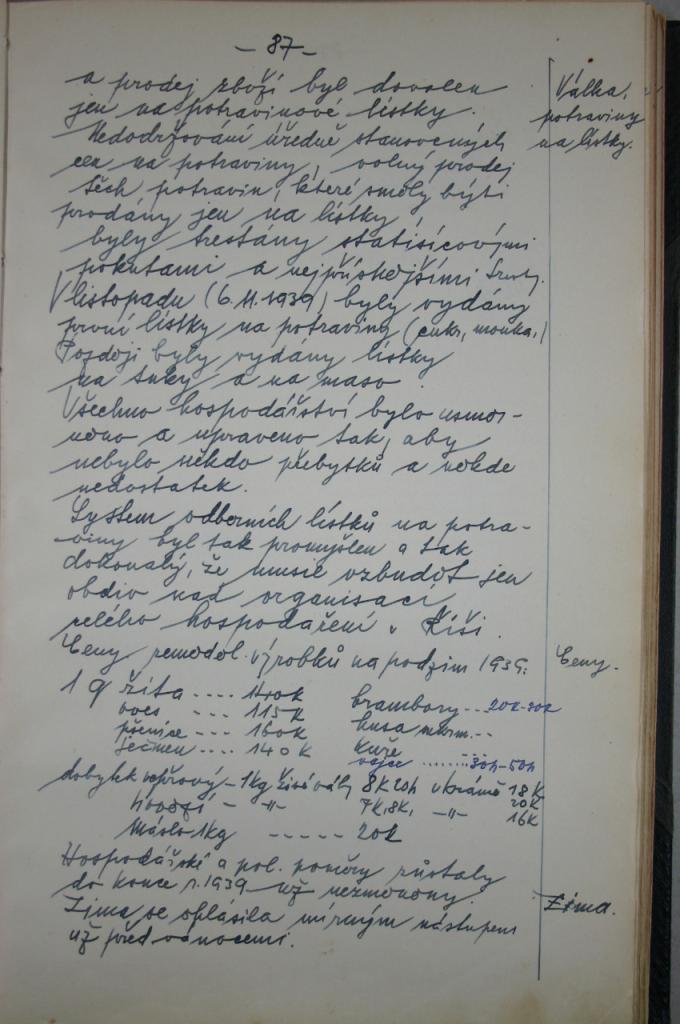 - 87 -
a prodej zboží byl dovolen
jen na potravinové lístky.
Válka,
potraviny
na lístky.
Nedodržování úředně stanovených
cen na potraviny, volný prodej
těch potravin, které směly býti
prodány jen na lístky,
byly trestány statisícovými
pokutami a nejpřísnějšími tresty.
V listopadu (6.11.1939) byly vydány
první lístky na potraviny (cukr, mouka,)
Později byly vydány lístky
na tuky a na maso.
Všechno hospodářství bylo usměr-
něno a upraveno tak, aby
nebylo někdo přebytků a někde
nedostatek.
Systém odběrních lístků na potra-
viny byl tak promyšlen a tak
dokonalý, že musil vzbudit jen
obdiv nad organisací
celého hospodaření v Říši.
Ceny zeměděl. výrobků na podzim 1939:
Ceny.
1 q žita .... 140K brambory... 20K-30K
oves ... 115K husa ...
pšenice ... 160K kuře
ječmen .... 140K vejce ......... 30h-50h
dobytek vepřový - 1kg živé váhy 8K20h v krámě 18K
20K
hovězí - -"- 7K,8K, -"- 16K
Máslo 1kg ----- 20K
Hospodářské a pol. poměry zůstaly
do konce r. 1939 už nezměněny.
Zima se ohlásila mírným nástupem
Zima.
už před vánocemi.